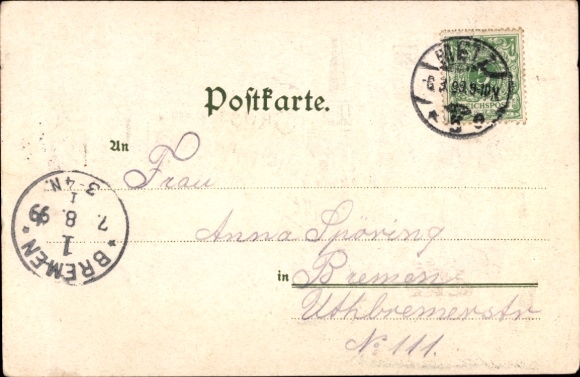 METZ
9-10N.
REICHSPOST
Postkarte.
An
Frau
Anna Spöring
in Bremen
Uthbremerstr
No 111.
BREMEN
1
7. 8. 99
3-4N.
1